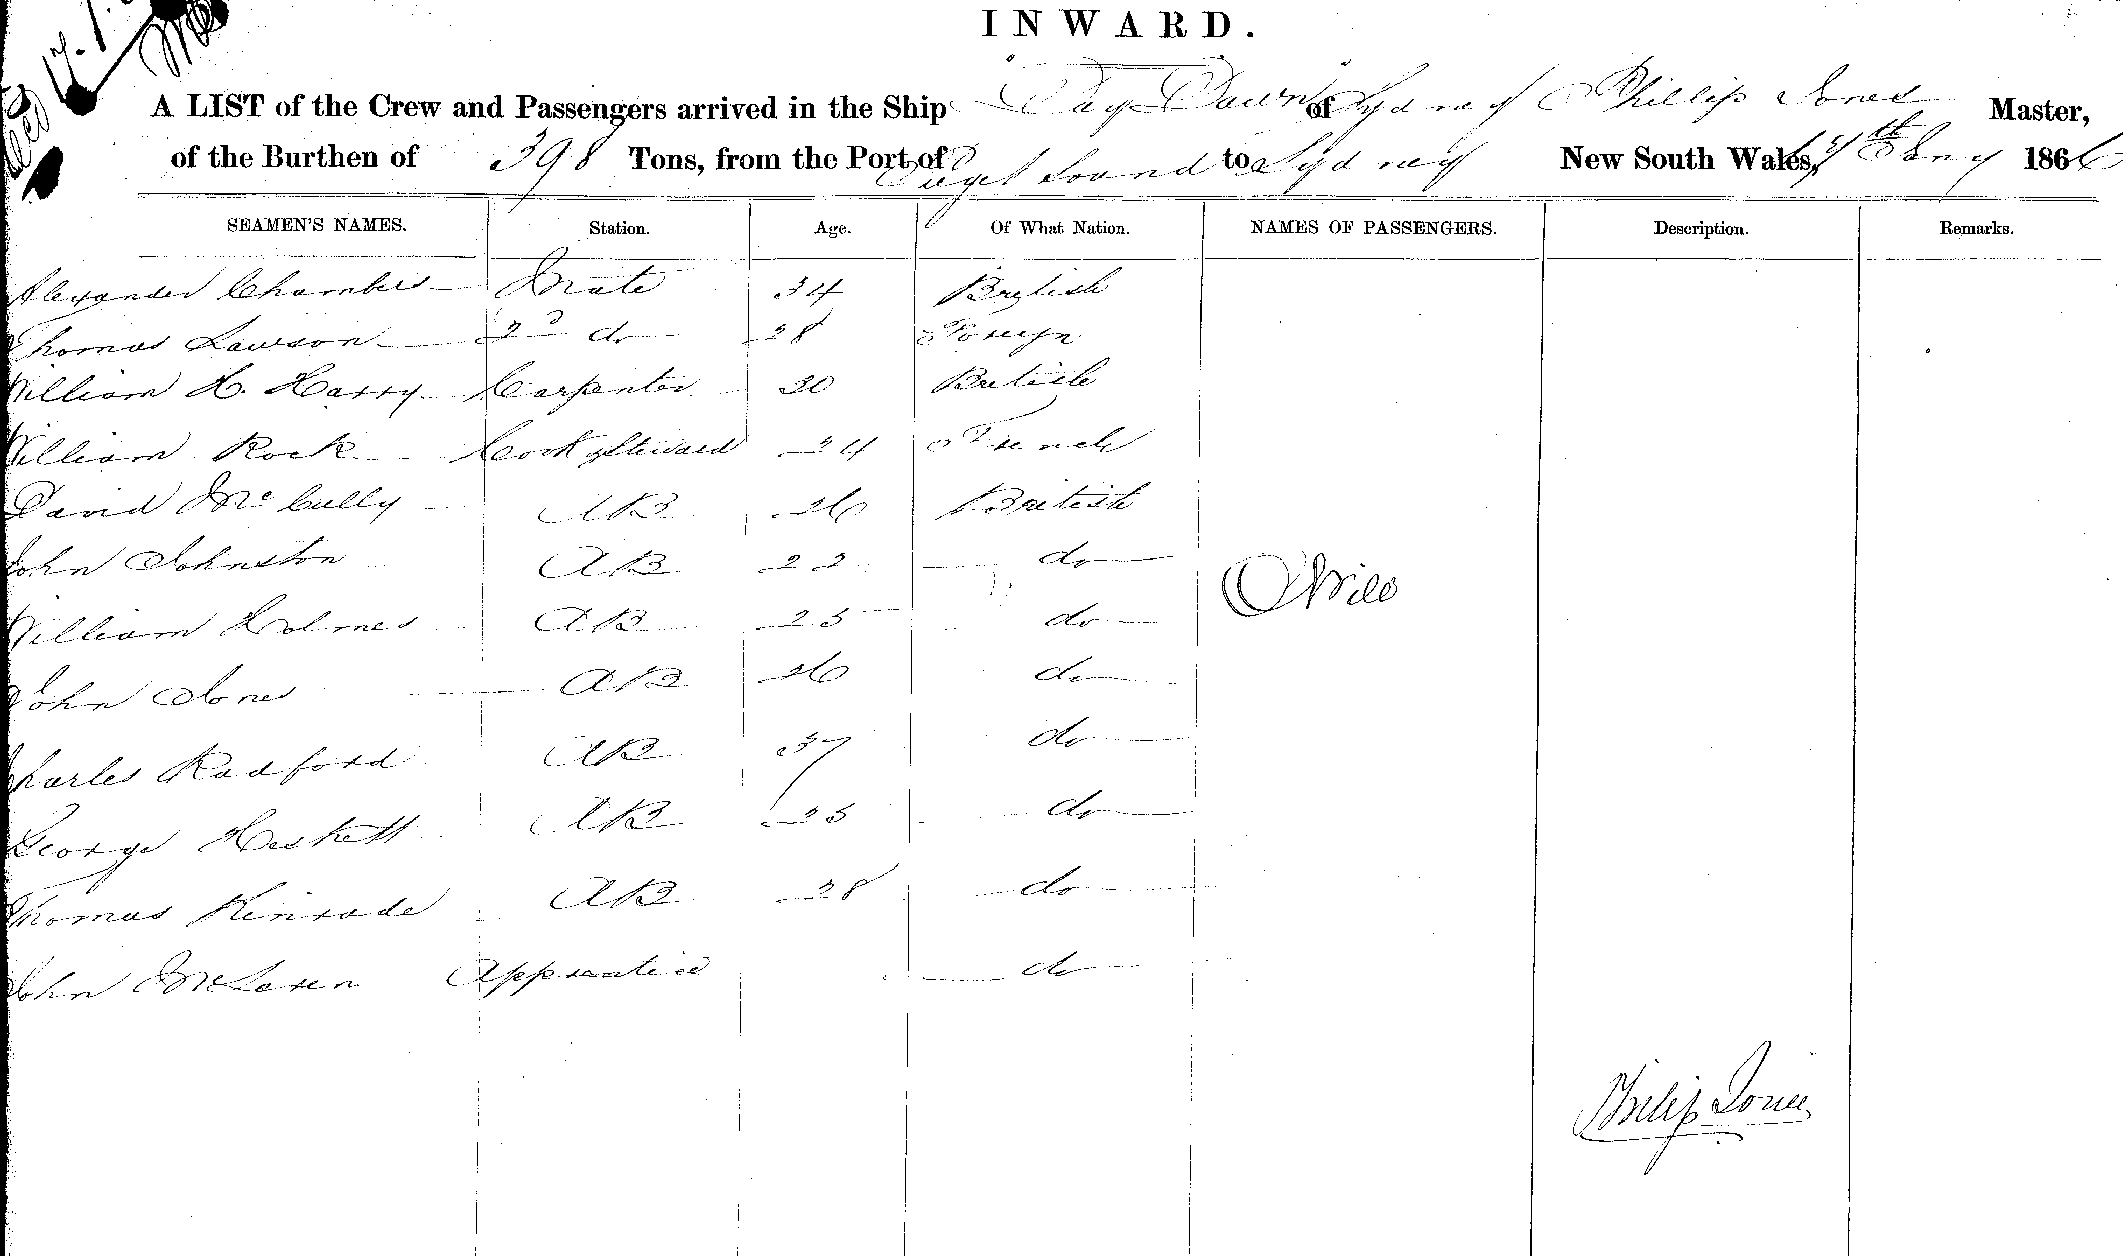 INWARD.
A LIST of the Crew and Passengers arrived in the Ship Day Dawn of Sydney Phillip Jones Master,
of the Burthen of 398 Tons, from the Port of Puget Sound to Sydney New South Wales, 17th Jany 1866
SEAMEN'S NAMES. Station. Age. Of What Nation. NAMES OF PASSENGERS. Description. Remarks.
Alexander Chambers Mate 34 British
Thomas Lawson 2d do 28 Foreign
William H. Harry Carpenter 30 British
William Rock Cook & Steward 24 French
David McCully AB 26 British
John Johnston AB 22 do
Nill
William Holmes AB 25 do
John Jones AB 26 do
Charles Radford AB 37 do
George Heskett AB 25 do
Thomas Kinrade AB 28 do
John McLaren Apprentice do
Philip Jones